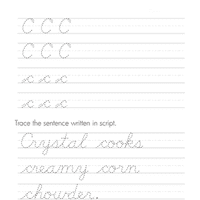 C C C
C C C
c c c
c c c
Trace the sentence written in script.
Crystal cooks
creamy corn
chowder.